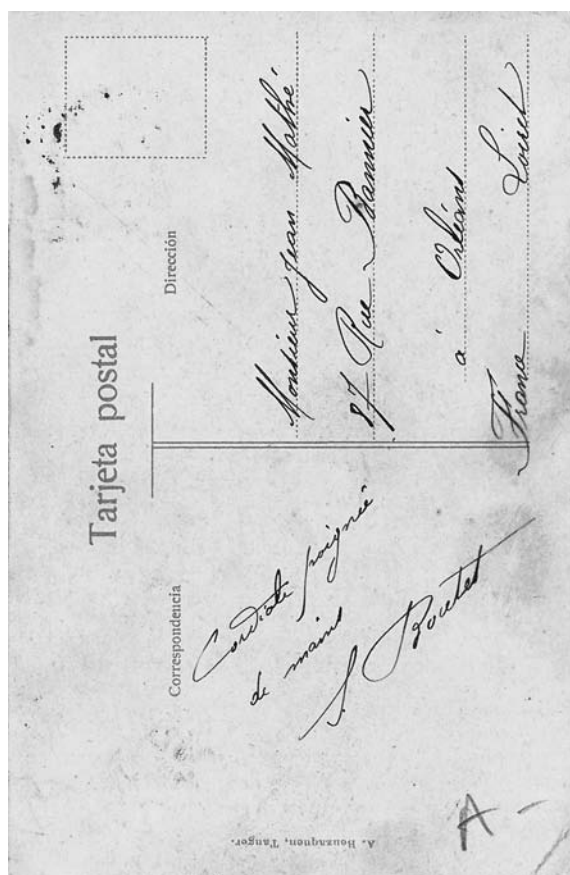 Tarjeta postal
Correspondencia
Dirección
Cordiale poignée
de mains
S. Boutet
Monsieur Jean Mathé
87 Rue Bannier
à Orléans
France Loiret
A. Benzaquen, Tanger.
A -